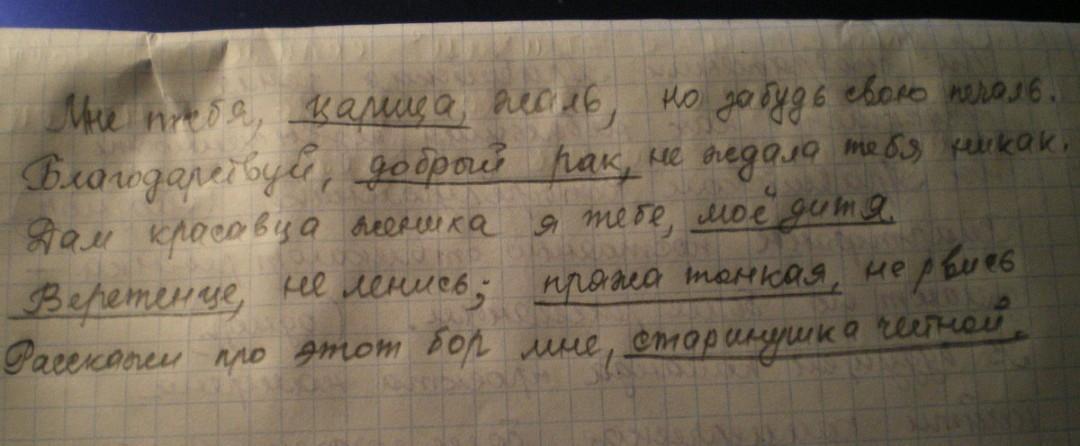 Мне тебя, царица, жаль, но забудь свою печаль.
Благодарствуй, добрый рак, не ждала тебя никак.
Дам красавца женишка я тебе, моё дитя.
Веретенце, не ленись; пряжа тонкая, не рвись
Расскажи про этот бор мне, старинушка честной.